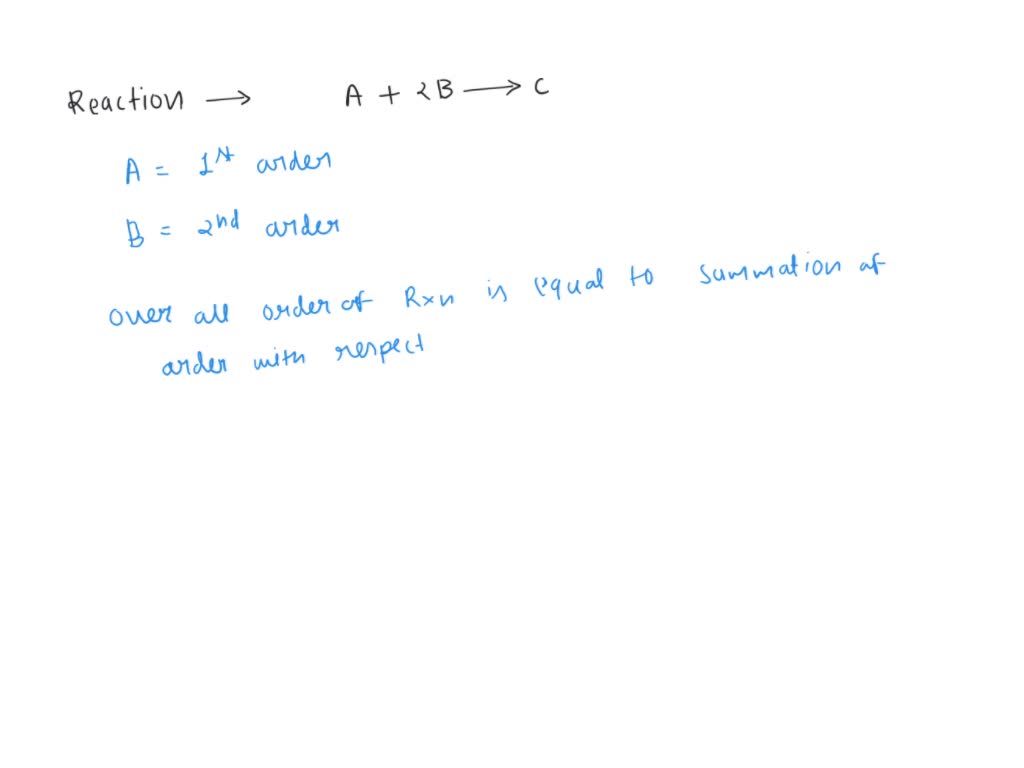 Reaction → A + 2B → C
A = 1st order
B = 2nd order
over all order of Rxn is equal to summation of
order with respect